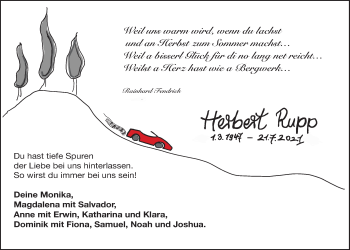 Weil uns warm wird, wenn du lachst
und an Herbst zum Sommer machst...
Weil a bisserl Glück für di no lang net reicht...
Weilst a Herz hast wie a Bergwerk...
Reinhard Fendrich
Herbert Rupp
1.3.1947 – 21.7.2021
Du hast tiefe Spuren
der Liebe bei uns hinterlassen.
So wirst du immer bei uns sein!
Deine Monika,
Magdalena mit Salvador,
Anne mit Erwin, Katharina und Klara,
Dominik mit Fiona, Samuel, Noah und Joshua.